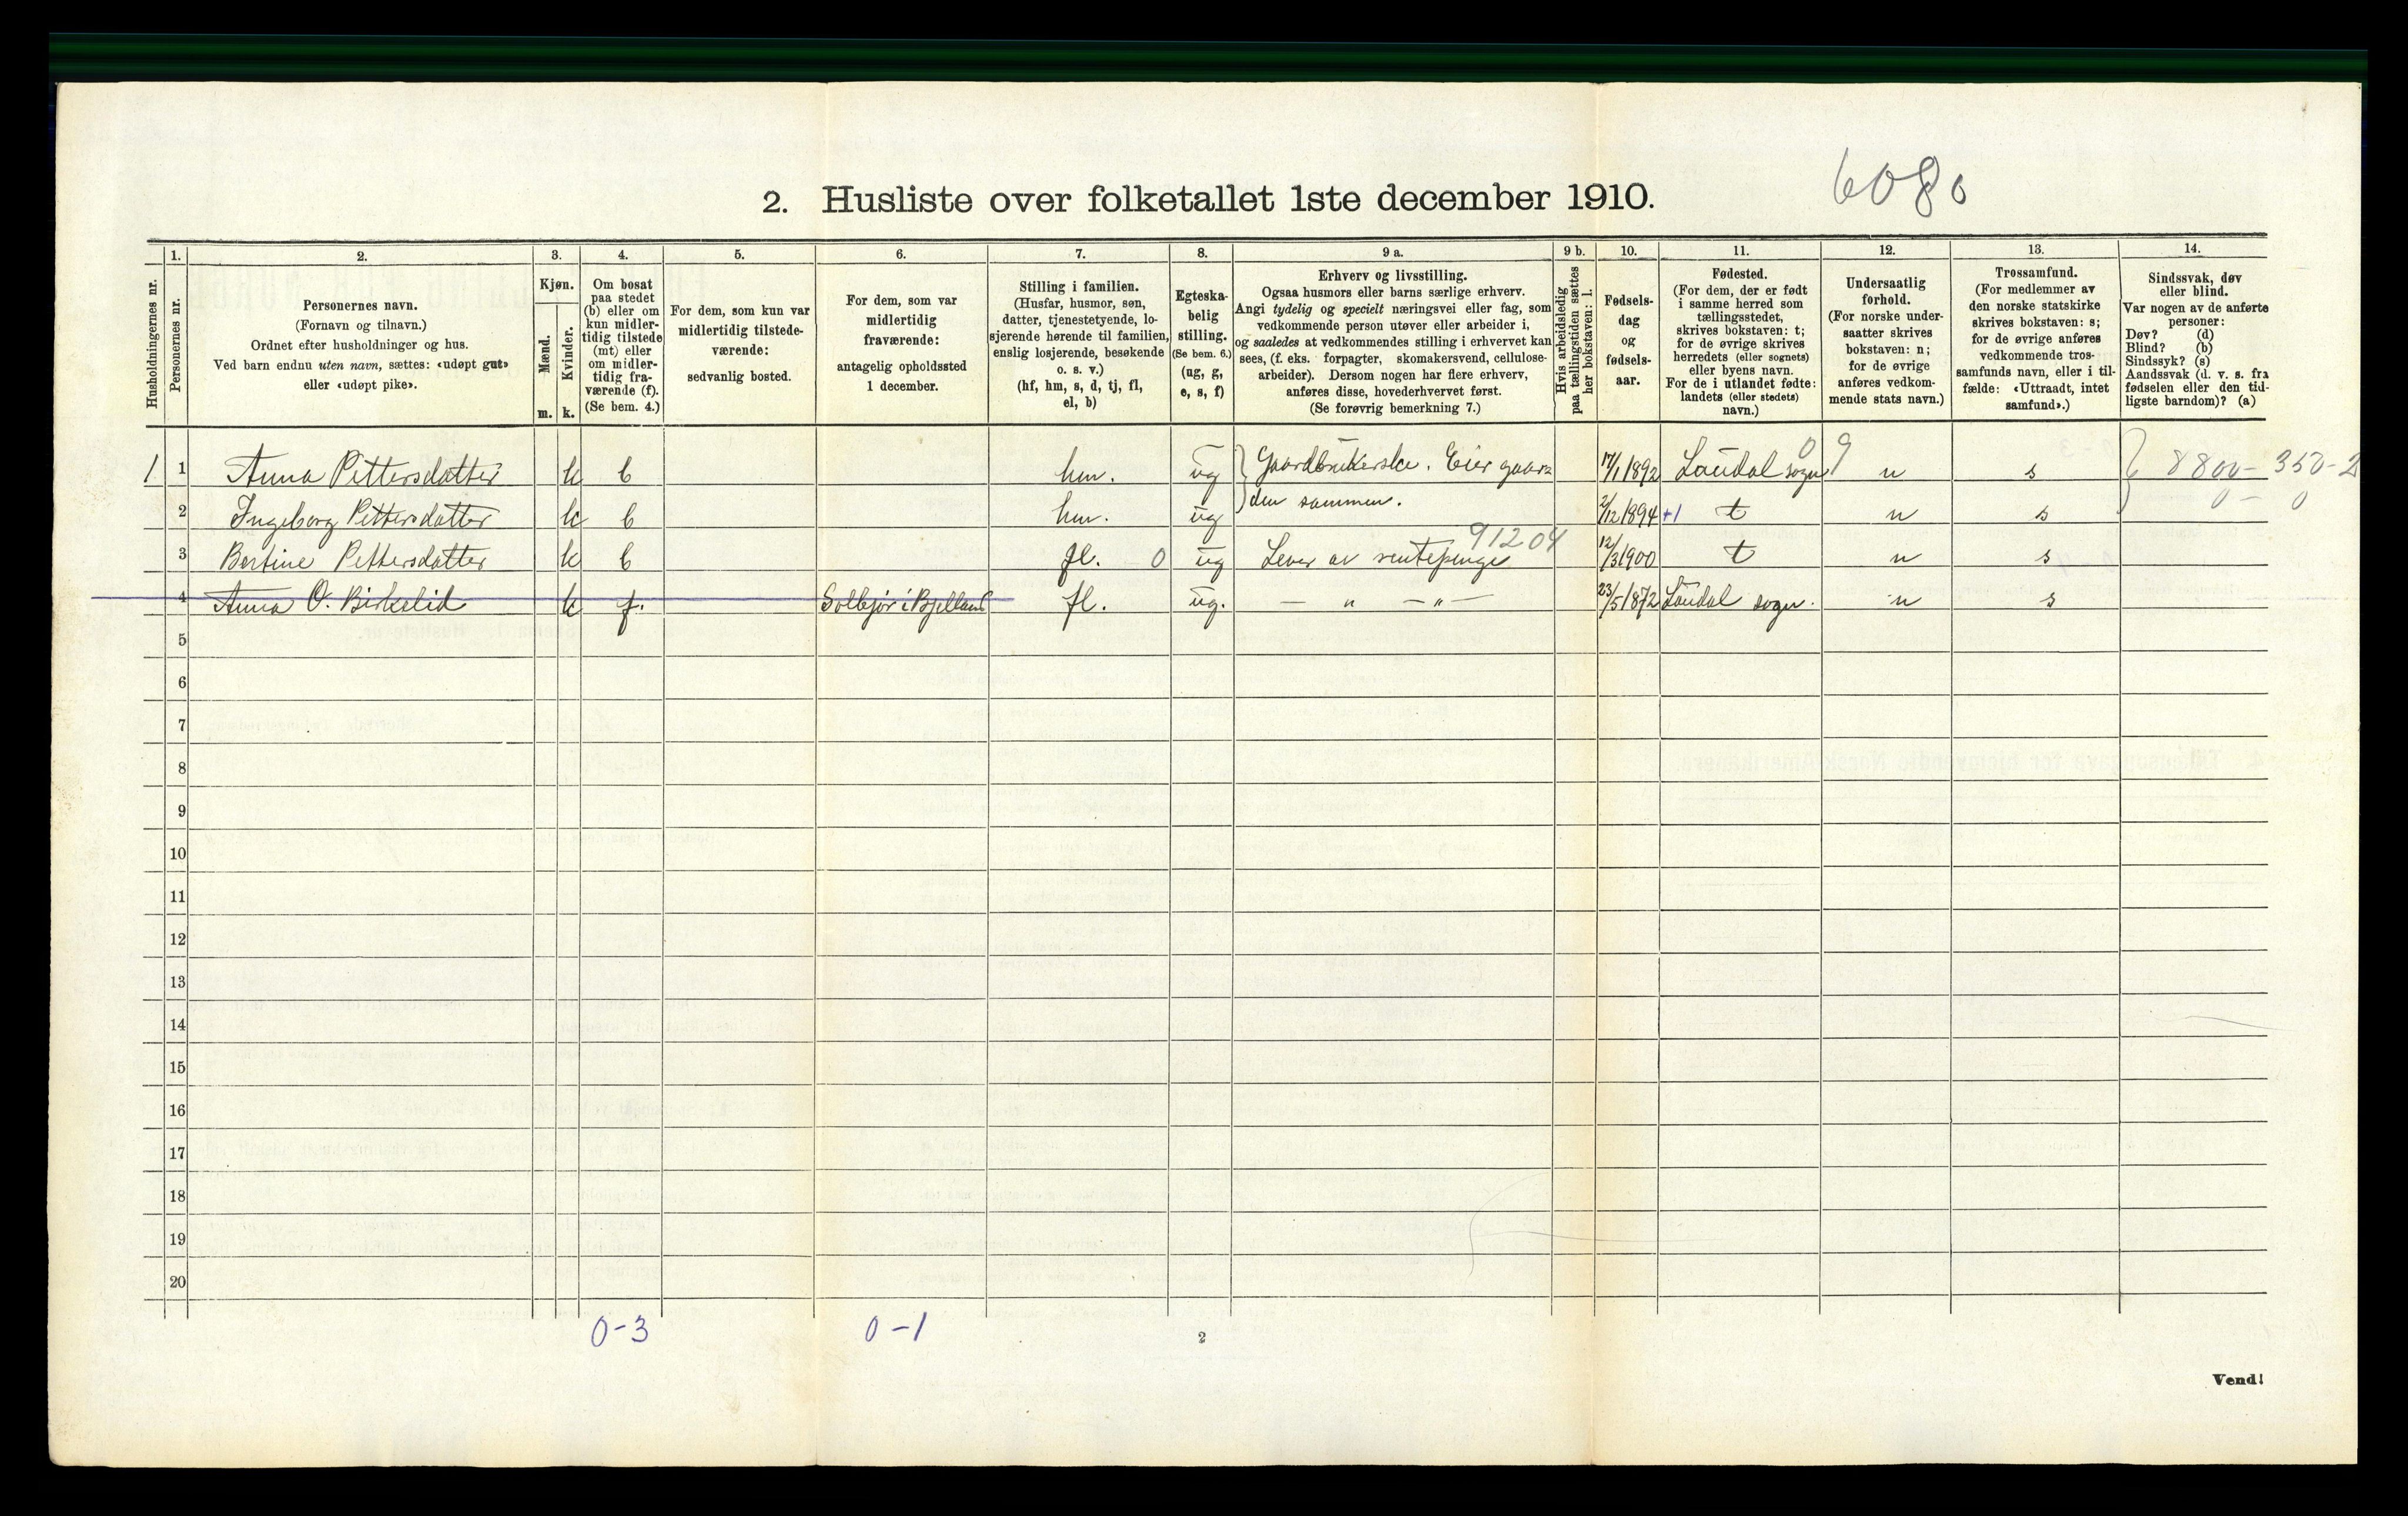 2. Husliste over folketallet 1ste december 1910.
6080
Husholdningernes nr.
1.
Personernes nr.
2.
Personernes navn.
(Fornavn og tilnavn.)
Ordnet efter husholdninger og hus.
Ved barn endnu uten navn, sættes: «udøpt gut»
eller «udøpt pike».
3.
Kjøn.
Mænd.
m.
Kvinder.
k.
4.
Om bosat
paa stedet
(b) eller om
kun midler-
tidig tilstede
(mt) eller
om midler-
tidig fra-
værende (f).
(Se bem. 4.)
5.
For dem, som kun var
midlertidig tilstede-
værende:
sedvanlig bosted.
6.
For dem, som var
midlertidig
fraværende:
antagelig opholdssted
1 december.
7.
Stilling i familien.
(Husfar, husmor, søn,
datter, tjenestetyende, lo-
sjerende hørende til familien,
enslig losjerende, besøkende
o. s. v.)
(hf, hm, s, d, tj, fl,
el, b)
8.
Egteska-
belig
stilling.
(Se bem. 6.)
(ug, g,
e, s, f)
9 a.
Erhverv og livsstilling.
Ogsaa husmors eller barns særlige erhverv.
Angi tydelig og specielt næringsvei eller fag, som
vedkommende person utøver eller arbeider i,
og saaledes at vedkommendes stilling i erhvervet kan
sees, (f. eks. forpagter, skomakersvend, cellulose-
arbeider). Dersom nogen har flere erhverv,
anføres disse, hovederhvervet først.
(Se forøvrig bemerkning 7.)
9 b.
Hvis arbeidsledig
paa tællingstiden sættes
her bokstaven: l.
10.
Fødsels-
dag
og
fødsels-
aar.
11.
Fødested.
(For dem, der er født
i samme herred som
tællingsstedet,
skrives bokstaven: t;
for de øvrige skrives
herredets (eller sognets)
eller byens navn.
For de i utlandet fødte:
landets (eller stedets)
navn.)
12.
Undersaatlig
forhold.
(For norske under-
saatter skrives
bokstaven: n;
for de øvrige
anføres vedkom-
mende stats navn.)
13.
Trossamfund.
(For medlemmer av
den norske statskirke
skrives bokstaven: s;
for de øvrige anføres
vedkommende tros-
samfunds navn, eller i til-
fælde: «Uttraadt, intet
samfund».)
14.
Sindssvak, døv
eller blind.
Var nogen av de anførte
personer:
Døv? (d)
Blind? (b)
Sindssyk? (s)
Aandssvak (d. v. s. fra
fødselen eller den tid-
ligste barndom)? (a)
1 1 Anna Pettersdatter k b hm. ug Gaardbrukerske. Eier gaar= 17/1 1892 Laudal sogn 0 9 n s 8800- 350-2
2 Ingeborg Pettersdatter k b hm. ug den sammen. 2/12 1894 +1 t n s 0 - 0
91204
3 Bertine Pettersdatter k b fl. 0 ug Lever av rentepenge 12/3 1900 t n s
4 Anna O. Birkelid k f. Solbjør i Bjelland fl. ug. — " — " — 23/5 1872 Laudal sogn. n s
5
6
7
8
9
10
11
12
13
14
15
16
17
18
19
20
0-3 0-1
2
Vend!